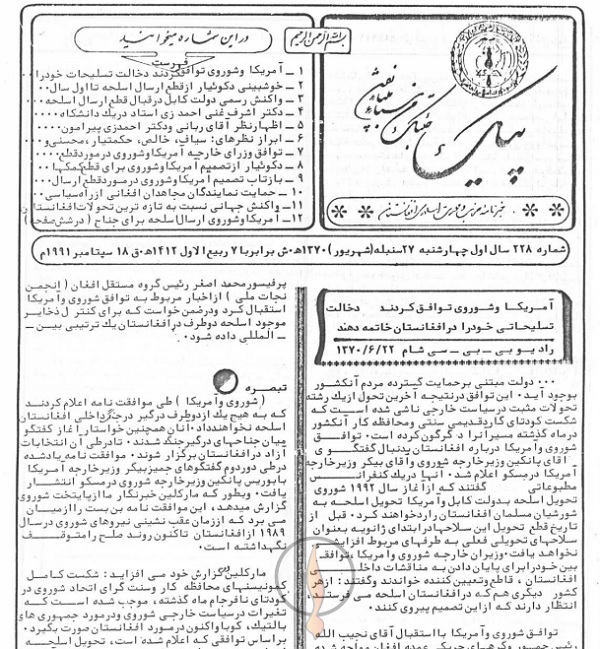 بسم الله الرحمن الرحیم
در این شماره میخوانید
فهرست
۱ ــ آمریکا وشوروی توافق کردند دخالت تسلیحات خودرا...
۲ ــ خوشبینی دکوئیار ازقطع ارسال اسلحه تا اول سال...
۳ ــ واکنش رسمی دولت کابل درقبال قطع ارسال اسلحه...
۴ ــ دکتر اشرف غنی احمد زی استاد دریك دانشگاه...
۵ ــ اظهارنظر آقای ربانی ودکتر احمدزی پیرامون...
۶ ــ ابراز نظرهای: سیاف، خالص، حکمتیار، محسنی و...
۷ ــ توافق وزرای خارجه آمریکا وشوروی درمورد قطع...
۸ ــ دکوئیار ازتصمیم آمریکا وشوروی برای قطع کمکها...
۹ ــ بازتاب تصمیم آمریکا وشوروی درمورد قطع ارسال...
۱۰ ــ حمایت نمایندگان مجاهدان افغانی ازراه سیاسی...
۱۱ ــ واکنش جهانی نسبت به تازه ترین تحولات افغانستان
۱۲ ــ آمریکا وشوروی ارسال اسلحه برای جناح (درشش صفحه)
شماره ۲۲۸ سال اول چهارشنبه ۲۷ سنبله (شهریور) ۱۳۷۰ ه‍ ش برابر با ۷ ربیع الاول ۱۴۱۲ ه‍ ق ۱۸ سپتامبر ۱۹۹۱ م
آمریکا وشوروی توافق کردند دخالت
تسلیحاتی خودرا درافغانستان خاتمه دهند
رادیو بی ــ بی ــ سی شام ۱۳۷۰/۶/۲۲
... دولت مبتنی برحمایت گسترده مردم آنکشور
بوجود آید. این توافق درنتیجه آخرین تحول ازیك رشته
تحولات مثبت درسیاست خارجی ناشی شده است که
شکست کودتای گاردقدیمی سنتی ومحافظه کار آنکشور
درماه گذشته مسیرآنرا دگرگون کرده است. توافق
شوروی وآمریکا درباره افغانستان بدنبال گفتگوی
آقای پانکین وزیرخارجه شوروی وآقای بیکر وزیرخارجه
آمریکا درمسکو اعلام شد. آنها دریك کنفرانس
مطبوعاتی گفتند که ازآغاز سال ۱۹۹۲ شوروی
تحویل اسلحه به دولت کابل وآمریکا تحویل اسلحه به
شورشیان مسلمان افغانستان را رد خواهند کرد. قبل از
تاریخ قطع تحویل این سلاحها درابتدای ژانویه بعنوان
سلاحهای تحویلی فعلی به طرفهای مربوط افزایش
نخواهد یافت. وزیران خارجه شوروی وآمریکا، توافق
بین خودرا برای پایان دادن به مناقشات داخلی
افغانستان، قاطع وتعیین کننده خواندند وگفتند: ازهر
کشور دیگری هم که درافغانستان اسلحه می فرستد،
انتظار دارند که ازاین تصمیم پیروی کنند.
توافق شوروی وآمریکا با استقبال آقای نجیب الله
پرفیسورمحمد اصغر رئیس گروه مستقل افغان (انجمن
نجات ملی) ازاخبار مربوط به توافق شوروی وآمریکا
استقبال کرد ودرضمن خواست که برای کنترل ذخایر
موجود اسلحه دوطرف درافغانستان یك ترتیبی بین ــ
ــ المللی داده شود.
تبصره
(شوروی وآمریکا) طی موافقت نامه اعلام کردند
که به هیچ یك ازدوطرف درگیر درجنگ داخلی افغانستان
اسلحه نخواهند داد. آنان همچنین خواستار آغاز گفتگو
میان جناحهای درگیر جنگ شدند. تا درطی آن انتخابات
آزاد درافغانستان برگزار شوند. موافقت نامه یادشده
درطی دوردوم گفتگوهای جمیزبیکر وزیرخارجه آمریکا
با بوریس پانکین وزیرخارجه شوروی درمسکو انتشار
یافت. وبطور که مارکلین خبرنگار ما ازپایتخت شوروی
گزارش میدهد، این موافقت نامه بن بست را ازمیان
می برد که اززمان عقب نشینی نیروهای شوروی درسال
۱۹۸۹ ازافغانستان تاکنون روند صلح را متوقف
نگهداشته است.
مارکلین گزارش خود می افزاید: شکست کامل
کمونیستهای محافظه کار وسنت گرای اتحاد شوروی در
کودتای نافرجام ماه گذشته، موجب شده است که
تغییرات درسیاست خارجی شوروی ودرمورد جمهوری های
بالتیك، کوبا واکنون درمورد افغانستان صورت بگیرد.
براساس توافقی که اعلام شده است، تحویل اسلحه